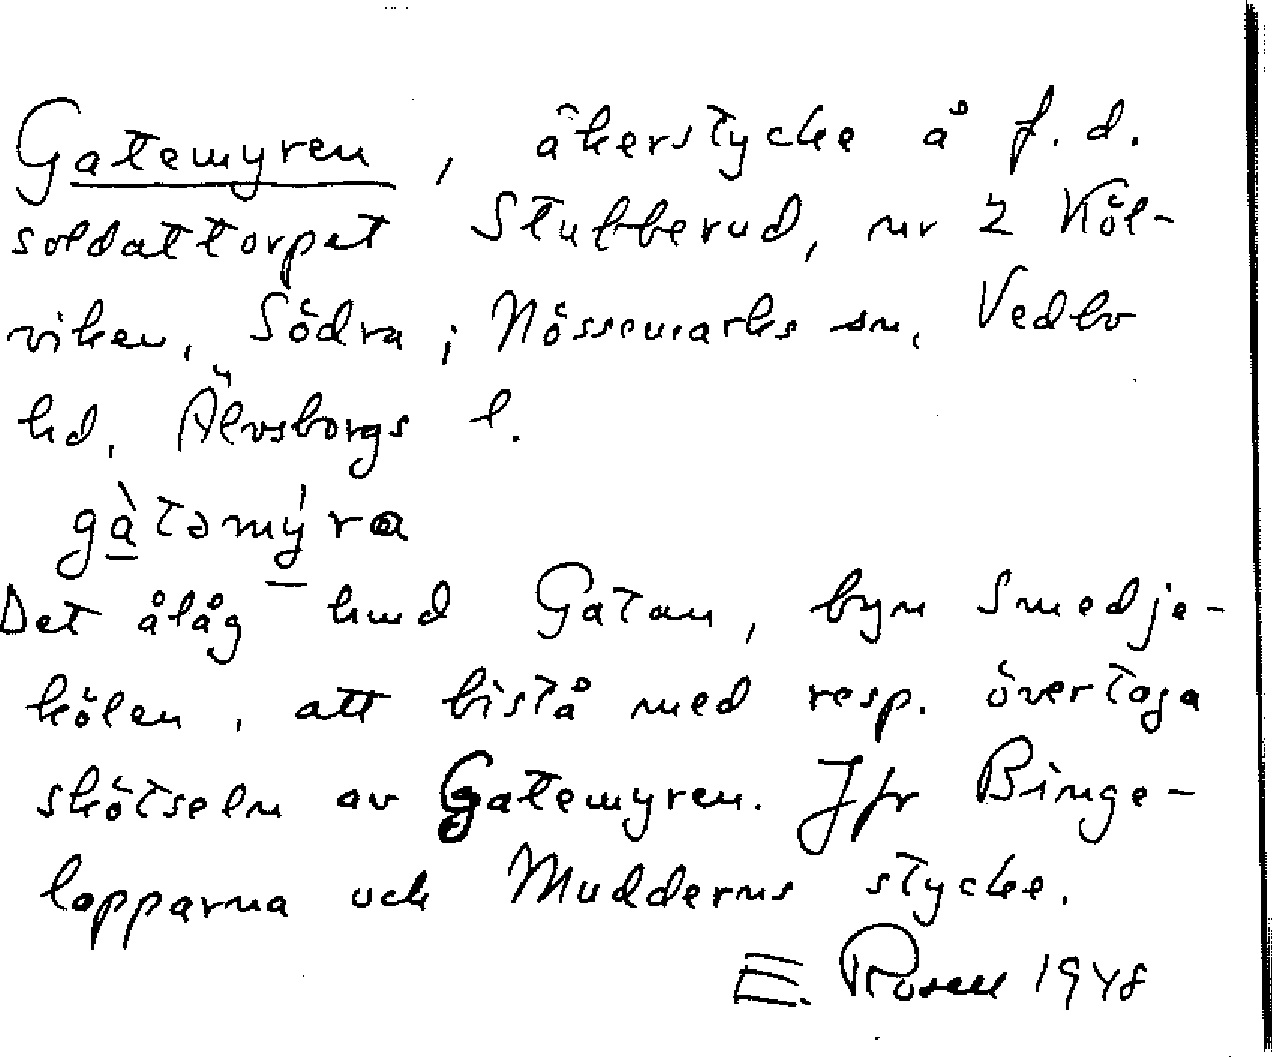 Gatemyren, åkerstycke å f.d.
soldattorpet Stubberud, nr 2 Köl-
viken, Södra i Nössemarks sn, Vedbo
hd, Älvsborgs l.
gàtəmýra
Det ålåg hmd Gatan, byn Smedje-
kölen, att bistå med resp. övertaga
skötseln av Gatemyren. Jfr Binge-
lapparna och Mudderns stycke.
E. Rosell 1948